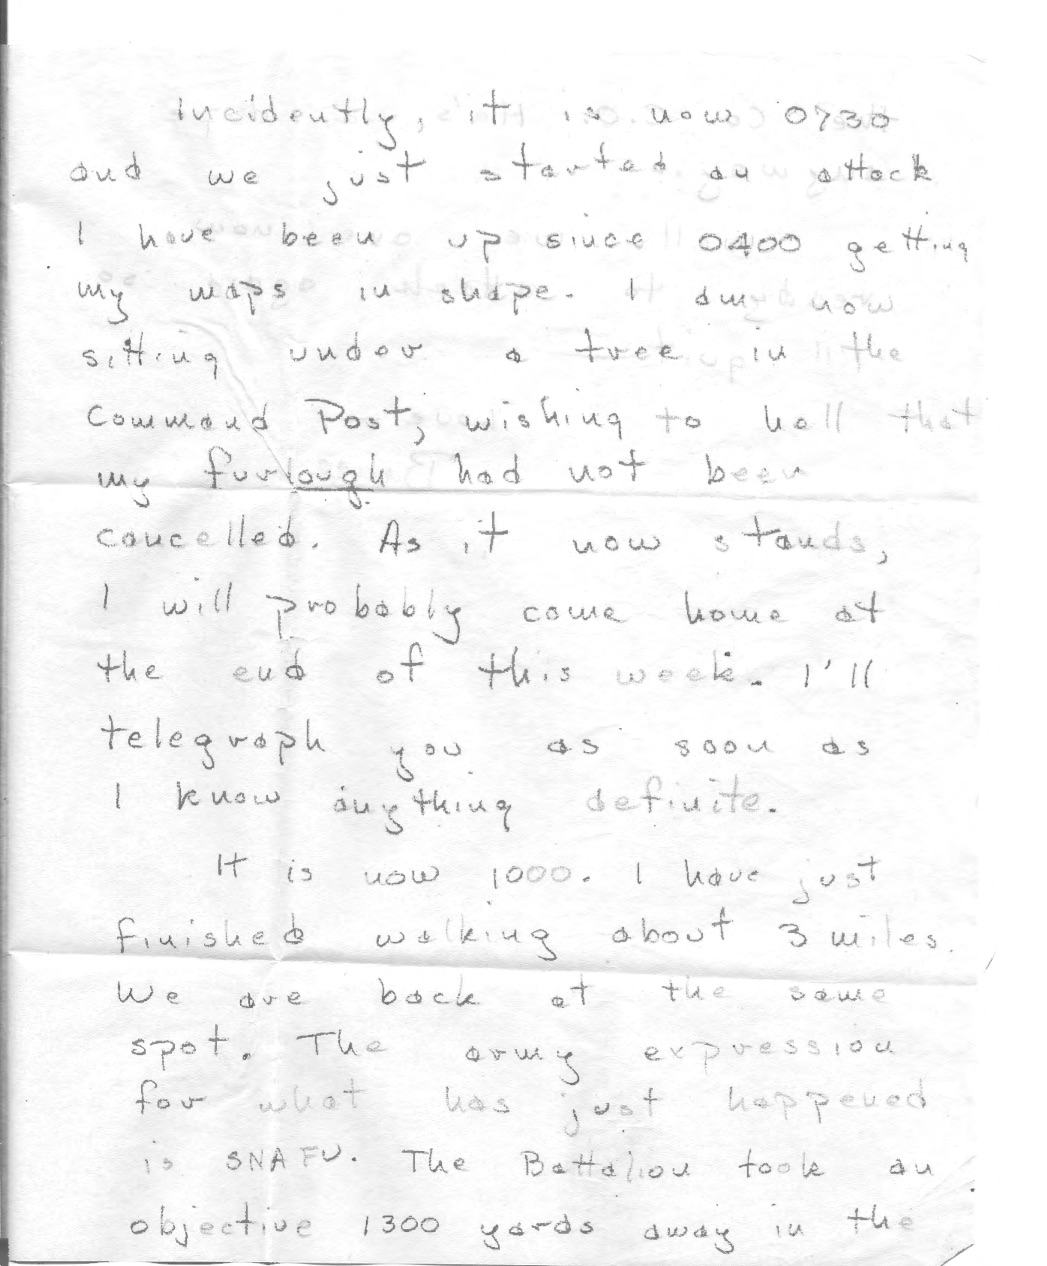 Incidently, it is now 0730
and we just started an attack
I have been up since 0400 getting
my maps in shape. I am now
sitting under a tree in the
Command Post, wishing to hell that
my furlough had not been
cancelled. As it now stands,
I will probably come home at
the end of this week. I'll
telegraph you as soon as
I know anything definite.
It is now 1000. I have just
finished walking about 3 miles.
We are back at the same
spot. The army expression
for what has just happened
is SNAFU. The Battalion took an
objective 1300 yards away in the